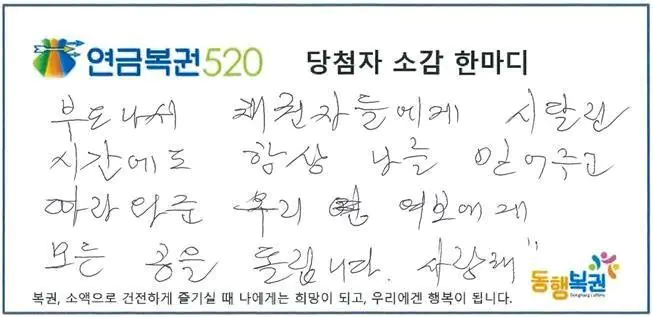 연금복권520 당첨자 소감 한마디
부도나서 채권자들에게 시달린
시간에도 항상 나를 믿어주고
따라와준 우리 여보에게
모든 공을 돌립니다. 사랑해"
동행복권
복권, 소액으로 건전하게 즐기실 때 나에게는 희망이 되고, 우리에겐 행복이 됩니다.